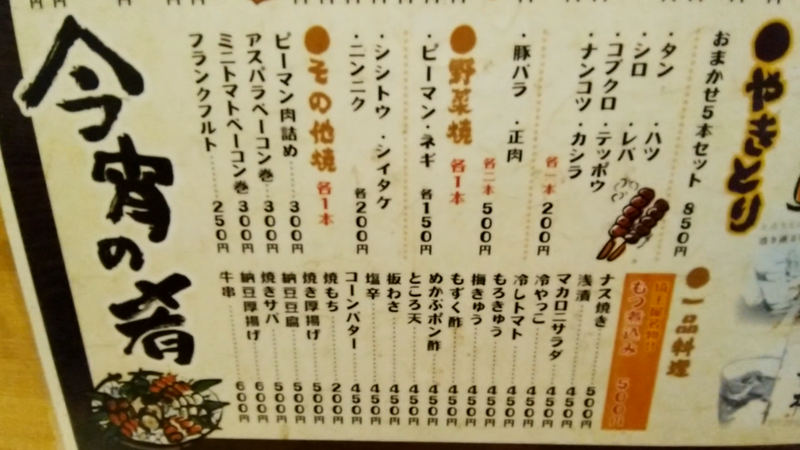 ●やきとり
おまかせ5本セット 850円
・タン ・ハツ
・シロ ・レバ
・コブクロ ・テッポウ
・ナンコツ ・カシラ
各一本 200円
・豚バラ ・正肉
各二本 500円
●野菜焼 各1本
・ピーマン・ネギ 各150円
・シシトウ ・シイタケ
・ニンニク 各200円
●その他焼 各1本
ピーマン肉詰め 300円
アスパラベーコン巻 300円
ミニトマトベーコン巻 300円
フランクフルト 250円
●一品料理
もつ煮込み 500円
ナス焼き 500円
浅漬 450円
マカロニサラダ 450円
冷やっこ 450円
冷しトマト 450円
もろきゅう 450円
梅きゅう 450円
もずく酢 450円
めかぶポン酢 450円
ところ天 450円
板わさ 450円
塩辛 450円
コーンバター 450円
焼もち 200円
焼き厚揚げ 500円
納豆豆腐 500円
焼きサバ 500円
納豆厚揚げ 600円
牛串 600円
今宵の肴